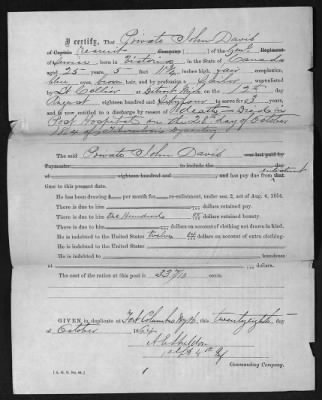 I certify, That Private John David
of Captain Recruit Company ( ) of the Genl Regiment
of Service born in Victoria in the State of Canada
aged 25 years, 5 feet inches high, fair complexion,
blue eyes, brown hair, and by profession a was enlisted
by Lt Collier at Detroit Mich on the 12th day
August eighteen hundred and Sixty four to serve 3 years,
and is now entitled to a discharge by reason of Death died in
Post Hospital on the day of October
1864 of
The said Private John David was last paid by
Paymaster to include the day
of eighteen hundred and and has pay due from enlistment
time to this present date.
He has been drawing $ per month for re-enlistment, under sec. 2, act of Aug. 4, 1854.
There is due to him dollars retained pay.
There is due to him One Hundred dollars bounty.
There is due to him dollars on account of clothing not drawn in kind.
He is indebted to the United States twelve dollars on extra clothing.
He is indebted to the United States
on
at dollars.
The cost of the rations at this post is cents.
GIVEN in duplicate at Fort Columbus NYH, this twenty eighth day
of October 1864
A. C. Sheldon
Commanding Company.